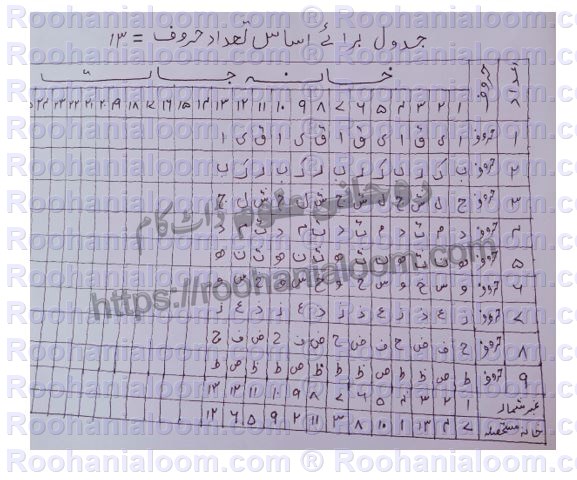 Roohanialoom.com ® Roohanialoom.com ® Roohanialoom.com
جدول برائے اساس تعداد حروف = ۱۳
قطار حروف خانہ جات
۱ ۲ ۳ ۴ ۵ ۶ ۷ ۸ ۹ ۱۰ ۱۱ ۱۲ ۱۳ ۱۴ ۱۵ ۱۶ ۱۷ ۱۸ ۱۹ ۲۰ ۲۱ ۲۲ ۲۳ ۲۴
۱ حروف ا ی ق ا ی ق ا ی ق ا ی ق ا
۲ حروف ب ک ر ب ک ر ب ک ر ب ک ر ب
۳ حروف ج ل ش ج ل ش ج ل ش ج ل ش ج
۴ حروف د م ت د م ت د م ت د م ت د
۵ حروف ھ ن ث ھ ن ث ھ ن ث ھ ن ث ھ
۶ حروف و س خ و س خ و س خ و س خ و
۷ حروف ز ع ذ ز ع ذ ز ع ذ ز ع ذ ز
۸ حروف ح ف ض ح ف ض ح ف ض ح ف ض ح
۹ حروف ط ص ظ ط ص ظ ط ص ظ ط ص ظ ط
نمبر شمار ۱ ۲ ۳ ۴ ۵ ۶ ۷ ۸ ۹ ۱۰ ۱۱ ۱۲ ۱۳
خانہ مستحصلہ ۷ ۴ ۱۳ ۱ ۱۰ ۸ ۳ ۱۱ ۲ ۹ ۵ ۶ ۱۲
روحانی علوم ڈاٹ کام
https://roohanialoom.com
Roohanialoom.com ® Roohanialoom.com ® Roohanialoom.com